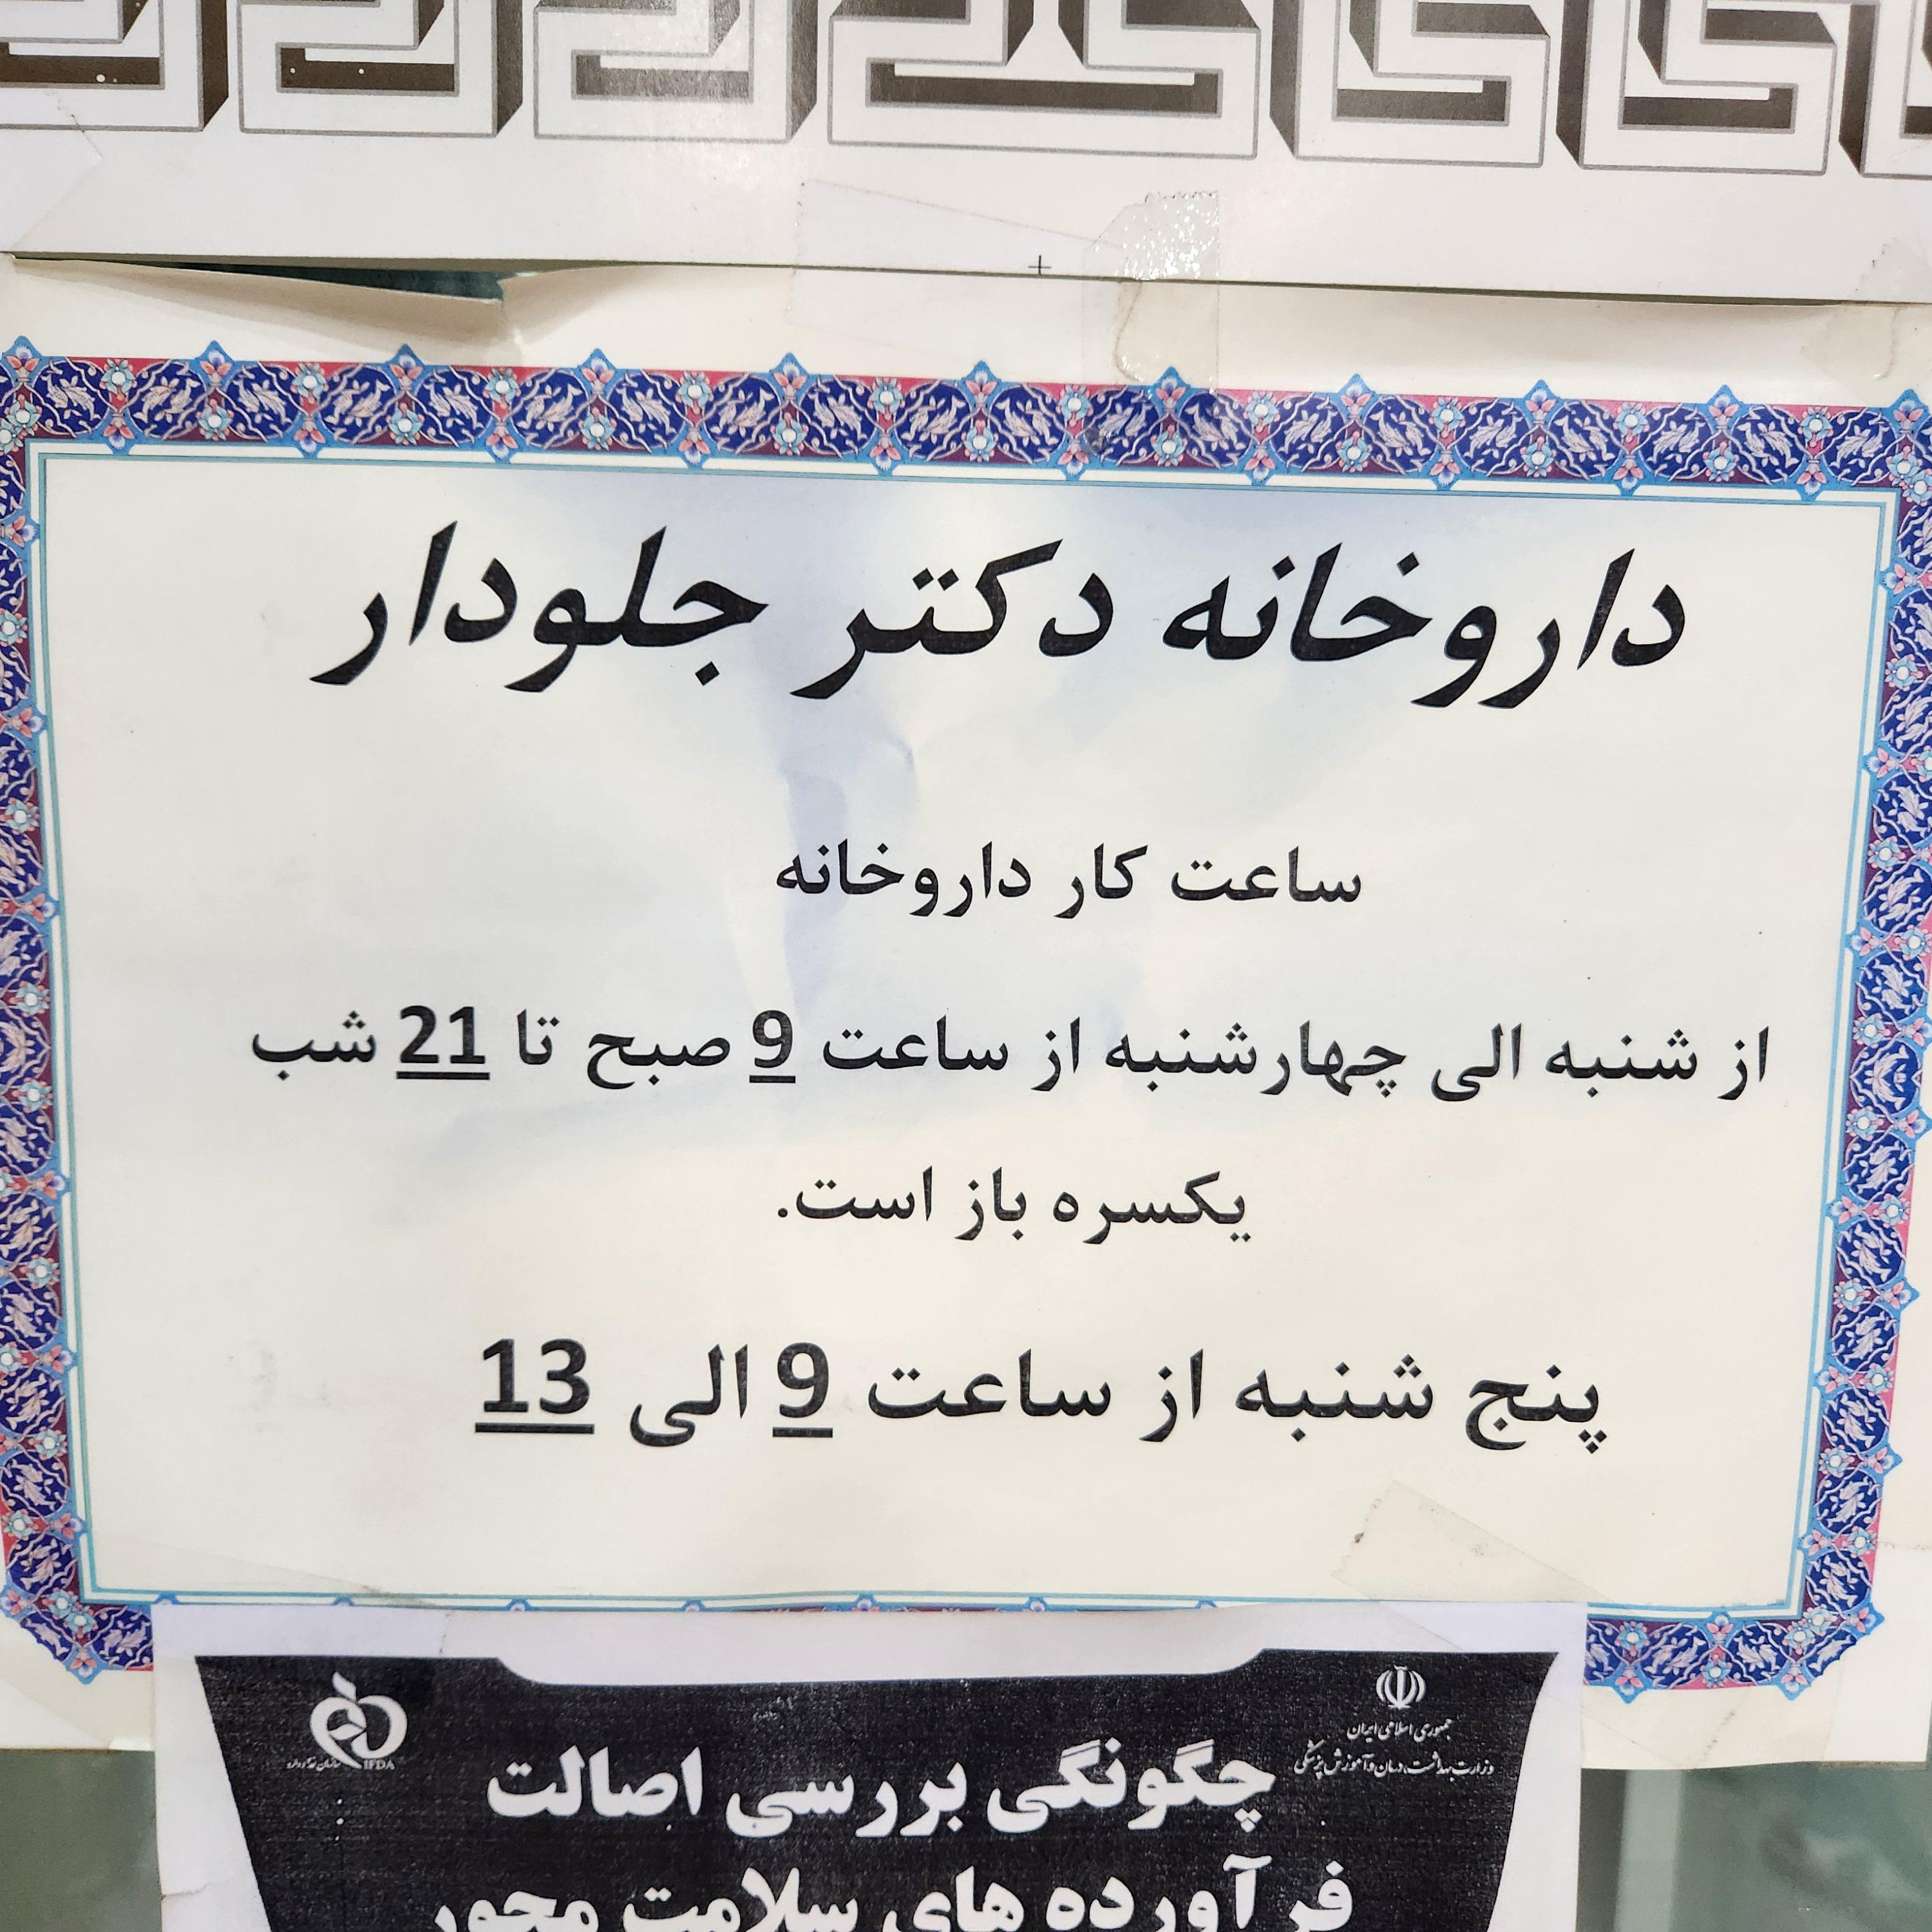 داروخانه دکتر جلودار
ساعت کار داروخانه
از شنبه الی چهارشنبه از ساعت 9 صبح تا 21 شب
یکسره باز است.
پنج شنبه از ساعت 9 الی 13
جمهوری اسلامی ایران
وزارت بهداشت، درمان و آموزش پزشکی
IFDA
سازمان غذا و دارو
چگونگی بررسی اصالت
فرآورده های سلامت محور